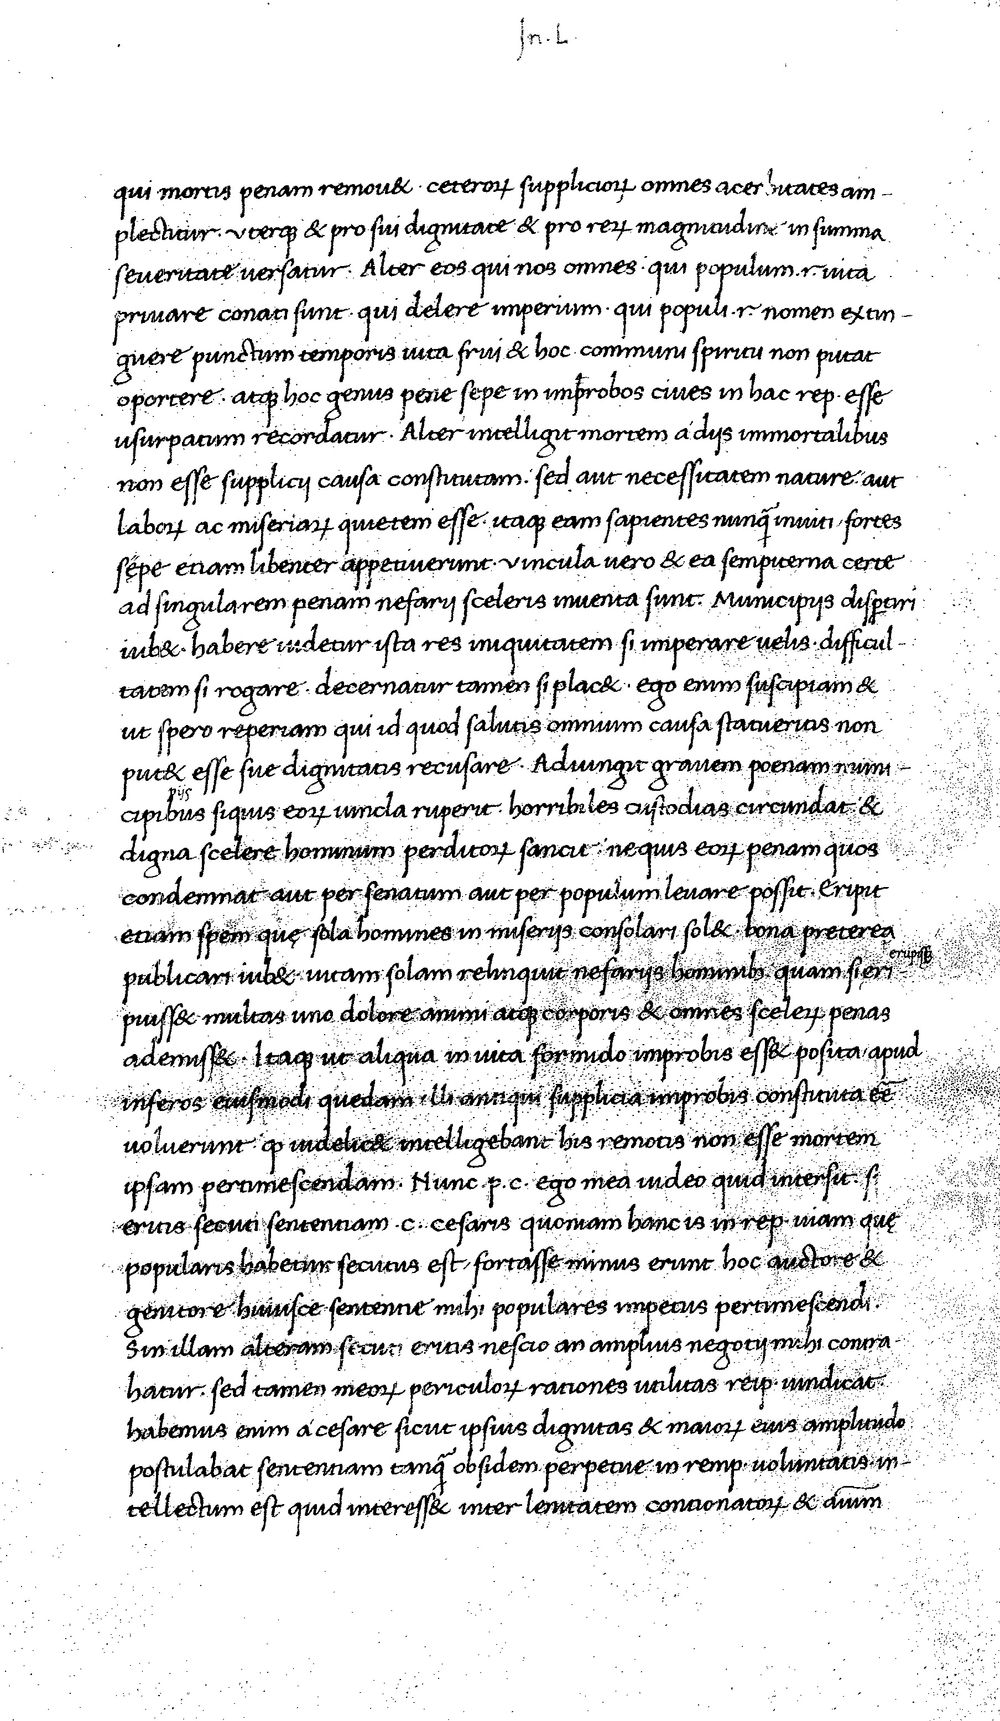 Jn. L.
qui mortis penam remou& · ceteroꝝ suppliciorꝝ omnes acerbitates am-
plectitur. vterqꝫ & pro sui dignitate & pro reꝝ magnitudine in summa
seueritate uersatur. Alter eos qui nos omnes · qui populum .r. uita
priuare conati sunt · qui delere imperium · qui populi .r. nomen extin-
guere punctum temporis uita frui & hoc communi spiritu non putat
oportere . atqꝫ hoc genus pene sepe in improbos ciues in hac rep. esse
usurpatum recordatur. Alter intelligit mortem a dijs immortalibus
non esse supplicij causa constitutam. sed aut necessitatem nature. aut
laboꝝ ac miseriaꝝ quietem esse. itaqꝫ eam sapientes nunq̄ inuiti, fortes
sępe etiam libenter appetiuerunt. vincula uero & ea sempiterna certe
ad singularem penam nefarij sceleris inuenta sunt. Municipijs dispartiri
iub&. habere uidetur ista res iniquitatem si imperare uelis. difficul-
tatem si rogare. decernatur tamen si plac&. ego enim suscipiam &
ut spero reperiam qui id quod salutis omnium causa statueritis non
put& esse sue dignitatis recusare. Adiungit grauem poenam muni-
pijs
cipibus siquis eoꝝ uincla ruperit. horribiles custodias circundat &
digna scelere hominum perditoꝝ sancit. ne quis eoꝝ penam quos
condemnat aut per senatum aut per populum leuare possit. Eripit
etiam spem quę sola homines in miserijs consolari sol&. bona preterea
publicari iub&. uitam solam relinquit nefarijs hominibꝫ. quam si eri
puiss& multas uno dolore animi atqꝫ corporis & omnes sceleꝝ penas
ademiss&. Itaqꝫ ut aliqua in uita formido improbis ess& posita, apud
inferos eiusmodi quedam illi antiqui supplicia improbis constituta eē
uoluerunt ꝙ uidelic& intelligebant his remotis non esse mortem
ipsam pertimescendam. Nunc .p.c. ego mea uideo quid intersit. si
eritis secuti sententiam .c. cesaris quoniam hanc is in rep. uiam quę
popularis habetur secutus est, fortasse minus erunt hoc auctore &
genitore huiusce sententie mihi populares impetus pertimescendi.
Sin illam alteram secuti eritis nescio an amplius negotij mihi contra-
hatur. sed tamen meoꝝ periculoꝝ rationes utilitas reip. uindicat.
habemus enim a cesare sicut ipsius dignitas & maioꝝ eius amplitudo
postulabat sententiam tanq̄ obsidem perpetue in remp. uoluntatis. in-
tellectum est quid interess& inter lenitatem contionatoꝝ & aīum